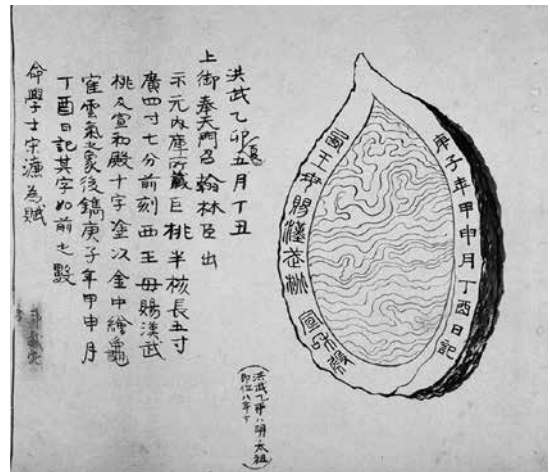 庚子年甲申月丁酉日記
西王母賜漢武桃
宣和殿
洪武乙卯夏五月丁丑
上御奉天門召翰林臣出
示元內庫所藏巨桃半核長五寸
廣四寸七分前刻西王母賜漢武
桃及宣和殿十字塗以金中繪龜
寉雲氣之象後鐫庚子年甲申月
丁酉日記其字如前之數
命學士宋濂為賦
(洪武乙卯ハ明太祖
即位八年